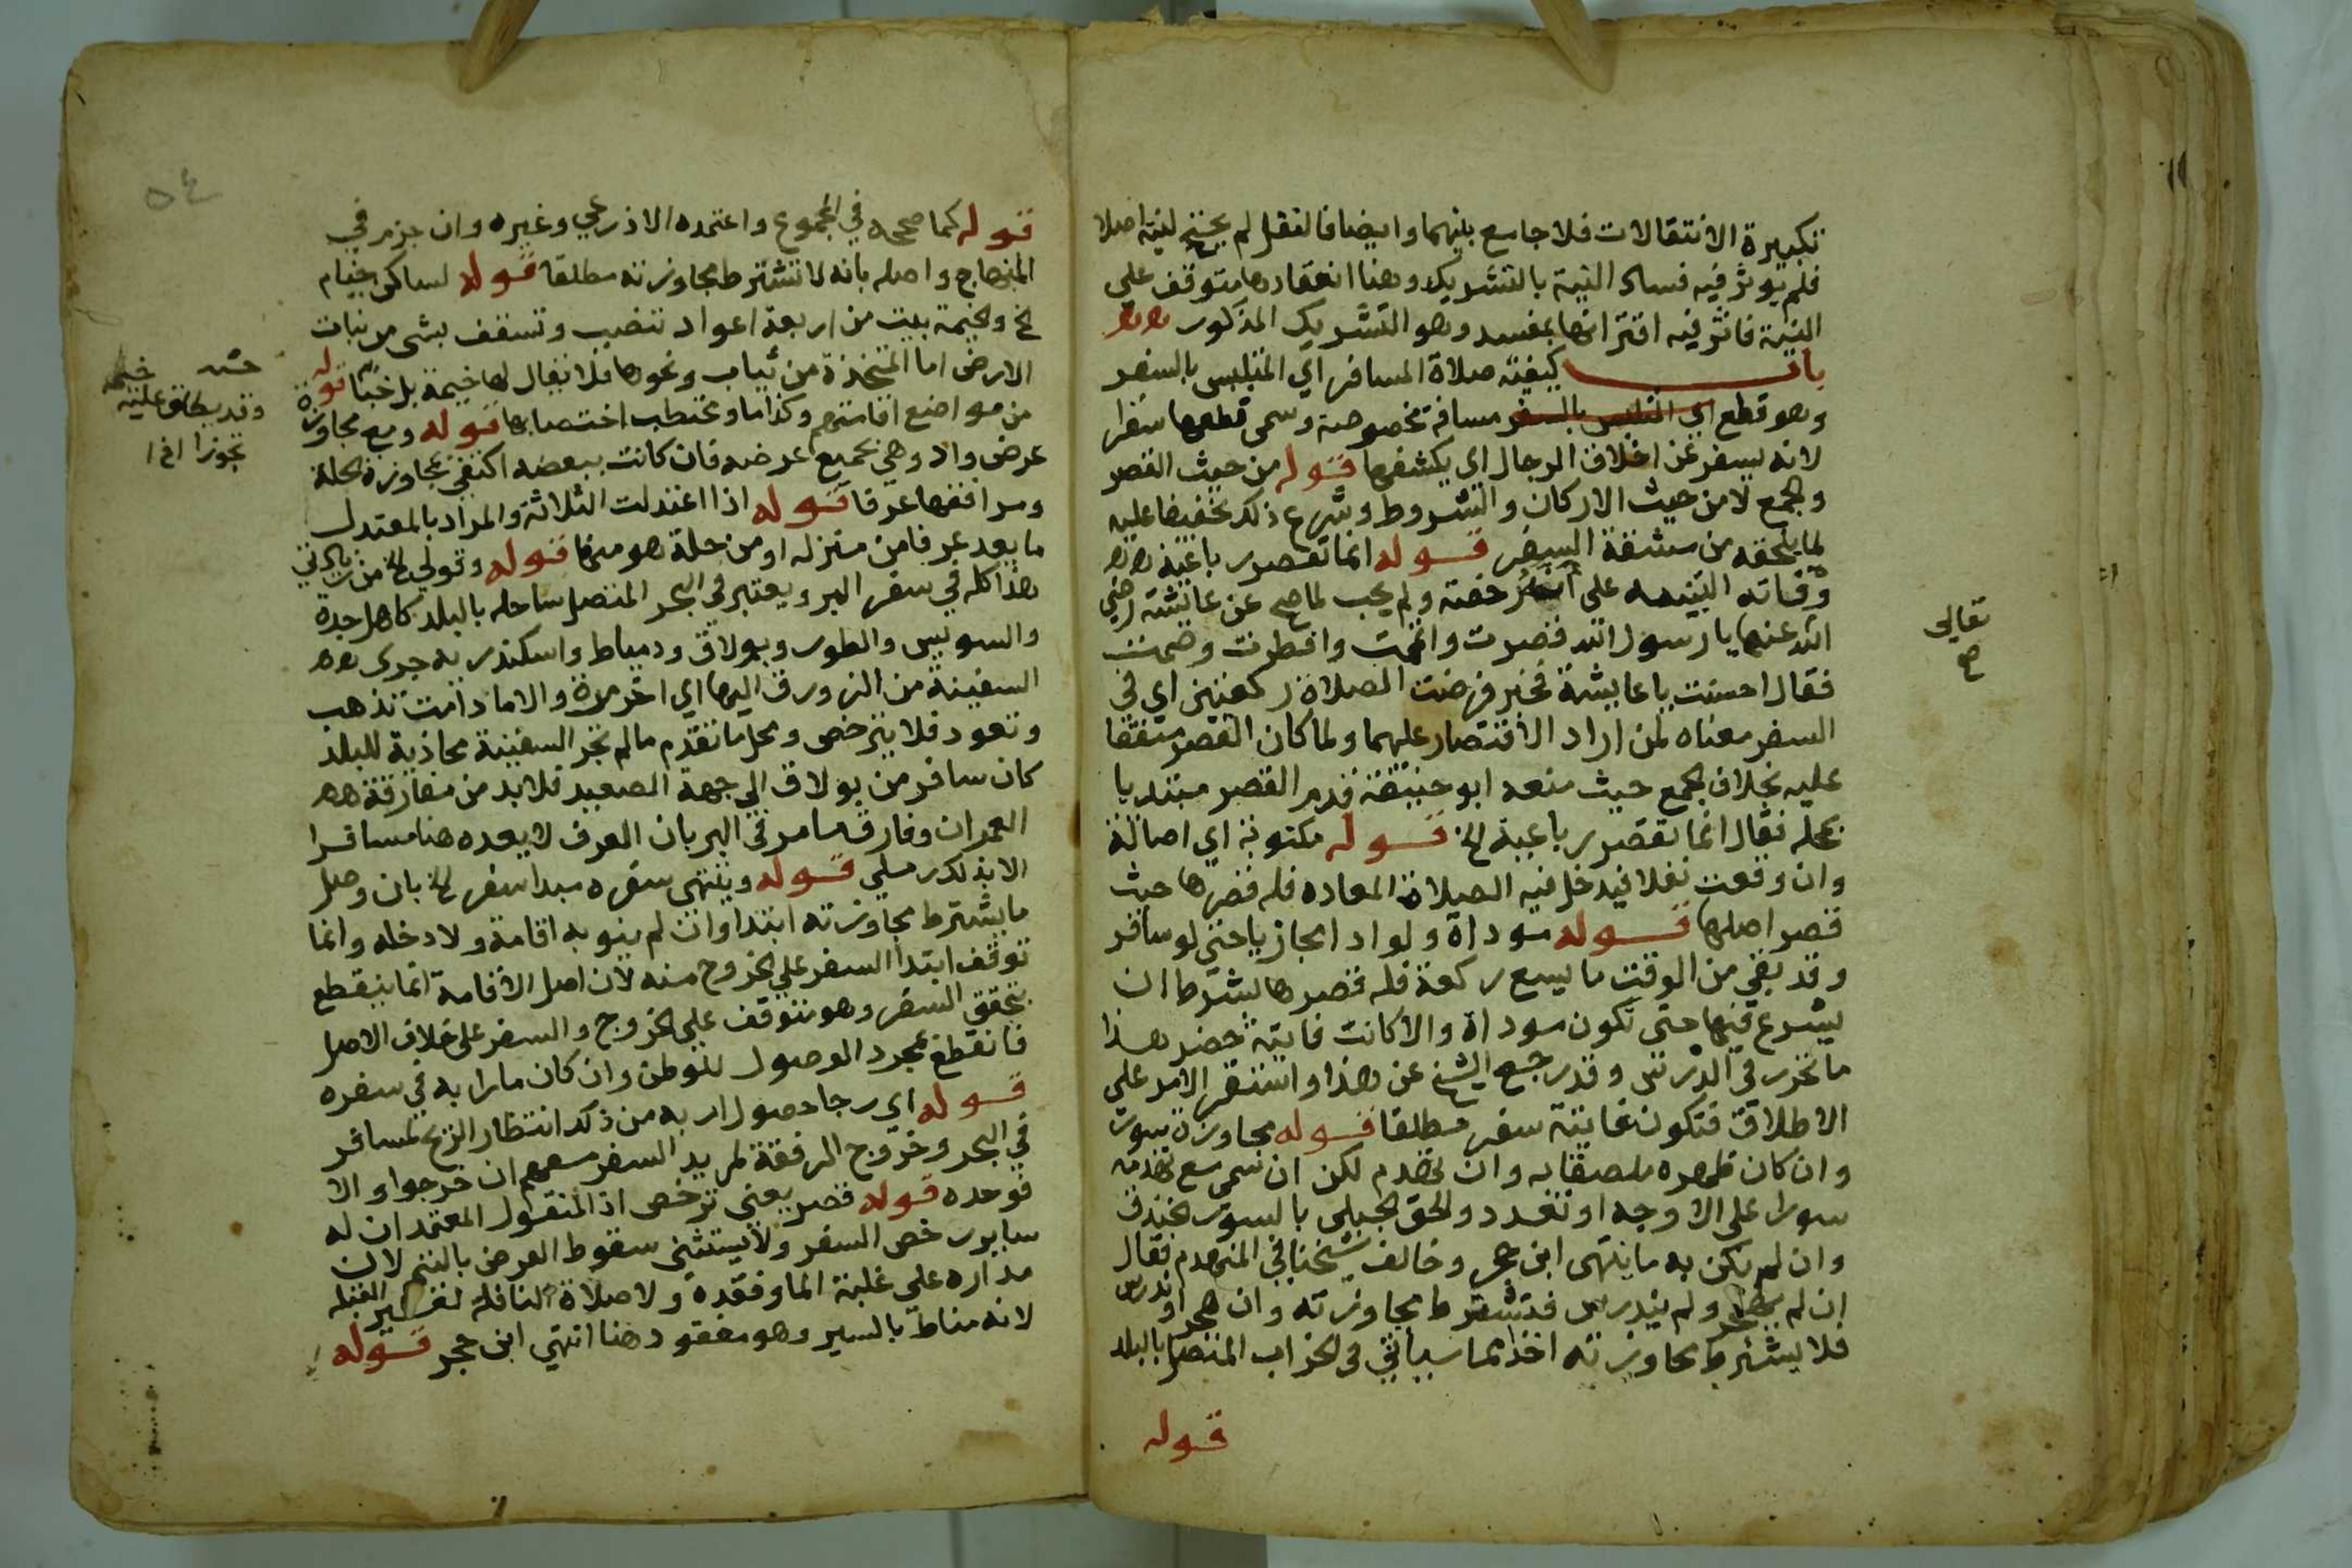 تكبيرة الانتقالات فلا جامع بينهما وايضا فالنفل لم يحتج لنية اصلا
فلم يوثر فيه فساد النية بالتشريك وهنا انعقادها متوقف على
النية فاثر فيه اقترانها بمفسد وهو التشريك المذكور
باب كيفية صلاة المسافر اي المتلبس بالسفر
وهو قطع اي المتلبس بالسفر مسافة مخصوصة وسمى قطعها سفرا
لانه يسفر عن اخلاق الرجال اي يكشفها قوله من حيث القصر
والجمع لا من حيث الاركان والشروط وشرع ذلك تخفيفا عليه
لما يلحقه من مشقة السفر قوله انما تقصر رباعية
رخصة ولم يجب لما صح عن عائشة رضي
الله عنها يا رسول الله قصرت واتممت وافطرت وصمت
فقال احسنت يا عايشة فخبر فرضت الصلاة ركعتين اي في
السفر معناه لمن اراد الاقتصار عليهما ولما كان القصر متفقا
عليه بخلاف الجمع حيث منعه ابو حنيفة قدم القصر مبتديا
بحمله فقال انما تقصر رباعية الخ قوله مكتوبة اي اصالة
وان وقعت نفلا فيدخل فيه الصلاة المعاده فله قصرها حيث
قصر اصلها قوله موداة ولو اداء مجازيا حتى لو سافر
وقد بقي من الوقت ما يسع ركعة فله قصرها بشرط ان
يشرع فيها حتى تكون موداة والا كانت فايتة حضر هذا
ما تحرر في الدرس وقد رجع الشيخ عن هذا واستقر الامر على
الاطلاق فتكون فايتة سفر مطلقا قوله مجاوزة سور
وان كان ظهره ملصقا به وان تهدم لكن ان سمى مع تهدمه
سورا على الاوجه او تعدد والحق الجيلي بالسور الخندق
وان لم يكن به ما انتهى ابن حجر وخالف شيخنا في المنهدم فقال
ان لم يهجر ولم يندرس فتشترط مجاوزته وان هجر او ندرس
فلا يشترط مجاوزته اخذا مما سيأتي في الخراب المتصل بالبلد
قوله
تعالى
صح
٥٤
قوله كما صححه في المجموع واعتمده الاذرعي وغيره وان جزم في
المنهاج واصله بانه لا تشترط مجاوزته مطلقا قوله لساكن خيام
الخ والخيمة بيت من اربعة اعواد تنصب وتسقف بشى من نبات
الارض اما المتخذة من ثياب ونحوها فلا يقال لها خيمة بل خبا قوله
من مواضع اقامتهم وكذا ماء ومحتطب اختصا بها قوله ومع مجاوزة
عرض واد وهي بجميع عرضه فان كانت ببعضه اكتفي بمجاوزة الحلة
ومرافقها عرفا قوله اذا اعتدلت الثلاثة والمراد بالمعتدل
ما يعد عرفا من منزله او من حلة هو منها قوله وقولي الخ من زيادتي
هذا كله في سفر البر ويعتبر في البحر المتصل ساحله بالبلد كاهل جدة
والسويس والطور وبولاق ودمياط واسكندرية جرى
السفينة من الزورق اليها اي اخر مرة والا ما دامت تذهب
وتعود فلا يترخص ومحل ما تقدم ما لم تجر السفينة محاذية للبلد
كان سافر من بولاق الى جهة الصعيد فلا بد من مفارقة
العمران وفارق ما مر في البر بان العرف لا يعده هنا مسافرا
الا بذلك رملي قوله وينتهى سفره مبدا سفر الخ بان وصل
ما يشترط مجاوزته ابتدا وان لم ينو به اقامة ولا دخله وانما
توقف ابتدا السفر على الخروج منه لان اصل الاقامة انما ينقطع
بتحقق السفر وهو متوقف على الخروج والسفر على خلاف الاصل
فانقطع بمجرد الوصول للوطن وان كان مارا به في سفره
قوله اي رجا حصول ارب به من ذلك انتظار الريح لمسافر
في البحر وخروج الرفقة لمريد السفر معهم ان خرجوا والا
فوحده قوله قصر يعني ترخص اذ المنقول المعتمد ان له
ساير رخص السفر ولا يستثنى سقوط الفرض بالتيمم لان
مداره على غلبة الما وفقده ولا صلاة النافلة لغير القبله
لانه مناط بالسير وهو مفقود هنا انتهي ابن حجر قوله
وقد يطلق عليه
تجوزا